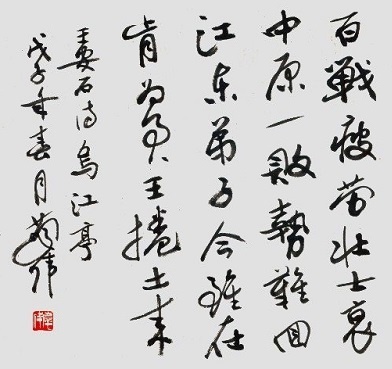 百戰疲劳壮士哀
中原一敗勢難回
江东弟子今雖在
肯为君王捲土来
王安石诗烏江亭
戊子年春月